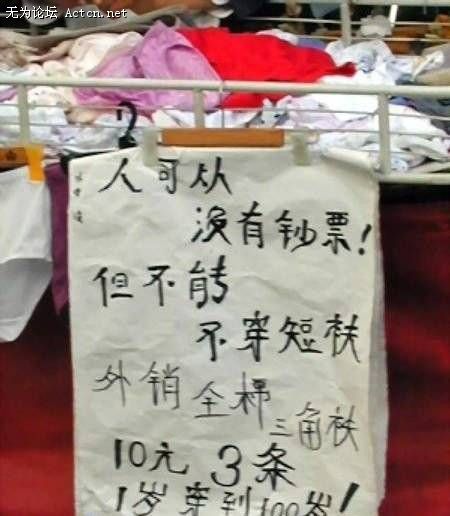 无为论坛 Actcn.net
人可从
没有钞票!
但不能
不穿短衭
外销全棉三角衭
10元3条
1岁穿到100岁!